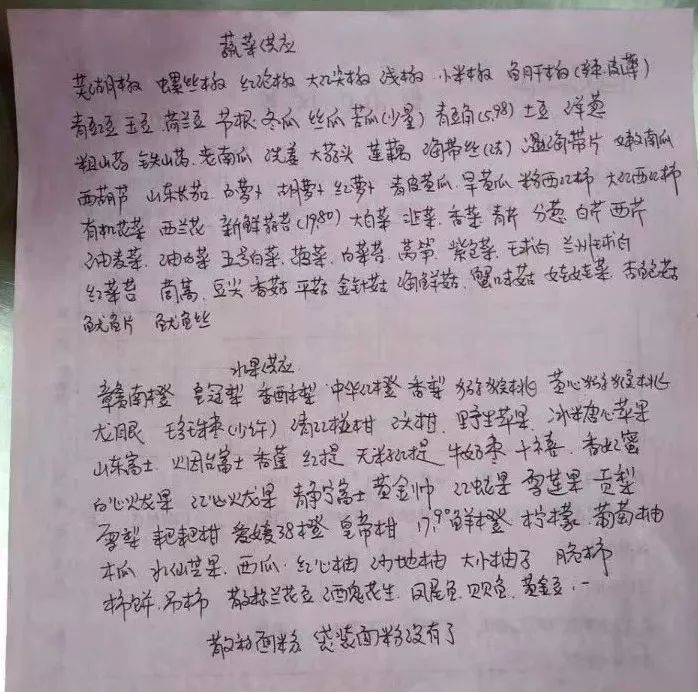 蔬菜供应
芜湖椒 螺丝椒 红泡椒 大红尖椒 线椒 小米椒 鱼肝椒(辣.皮薄)
青豆豆 玉豆 荷兰豆 节根 冬瓜 丝瓜 苦瓜(少量) 青豆角(5.98) 土豆 洋葱
粗山药 铁山药. 老南瓜 洗姜 大蒜头 莲藕 海带丝(结) 湿海带片 嫩南瓜
西葫芦 山东长茄. 白萝卜 胡萝卜 红萝卜 青皮黄瓜. 旱黄瓜 粉西红柿 大红西红柿
有机花菜 西兰花 新鲜蒜苔(1980) 大白菜 韭菜. 香菜. 青芹 分葱 白芹 西芹
油麦菜. 油白菜 五号白菜. 菠菜. 白菜苔. 莴笋. 紫包菜. 毛白 兰州毛白
红菜苔 茼蒿. 豆尖 香菇 平菇 金针菇 海鲜菇. 蟹味菇 娃娃菜. 杏鲍菇
鱿鱼片 鱿鱼丝
水果供应
赣南橙 皇冠梨 香酥梨 中华红橙 香梨 猕猴桃 黄心猕猴桃
龙眼 珍珠枣(少许) 清江椪柑 沃柑. 野生苹果. 冰糖心苹果
山东富士. 烟台富士 香蕉 红提 无籽红提 牛奶枣 千禧. 香水蜜
白心火龙果 红心火龙果 静宁富士 黄金帅 红蛇果 雪莲果 贡梨
雪梨 耙耙柑 爱媛38橙 皇帝柑 17.9°鲜橙 柠檬. 葡萄柚
木瓜 水仙芒果. 西瓜. 红心柚 沙地柚 大小柚子 脆柿
柿饼. 吊柿 散称兰花豆 酒鬼花生. 凤尾鱼. 贝贝鱼. 黄金豆.
散称面粉 袋装面粉没有了